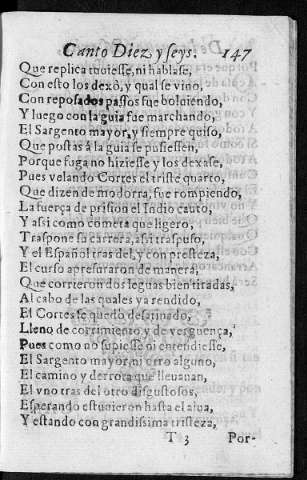 Canto Diez y seys. 147
Que replica tuuiesse, ni hablase,
Con esto los dexò, y qual se vino,
Con reposados passos fue boluiendo,
Y luego con la guia fue marchando,
El Sargento mayor, y siempre quiso,
Que postas à la guia se pusiessen,
Porque fuga no hiziesse y los dexase,
Pues velando Cortes el triste quarto,
Que dizen de modorra, fue rompiendo,
La fuerça de prision el Indio cauto,
Y assi como cometa que ligero,
Traspone su carrera, assi traspuso,
Y el Español tras del, y con presteza,
El curso apresuraron de manera,
Que corrieron dos leguas bien tiradas,
Al cabo de las quales ya rendido,
El Cortes se quedò desatinado,
Lleno de corrimiento y de verguença,
Pues como no supiesse ni entendiesse,
El Sargento mayor, ni otro alguno,
El camino y derrota que lleuauan,
El vno tras del otro disgustosos,
Esperando estuuieron hasta el alua,
Y estando con grandissima tristeza,
T 3 Por-